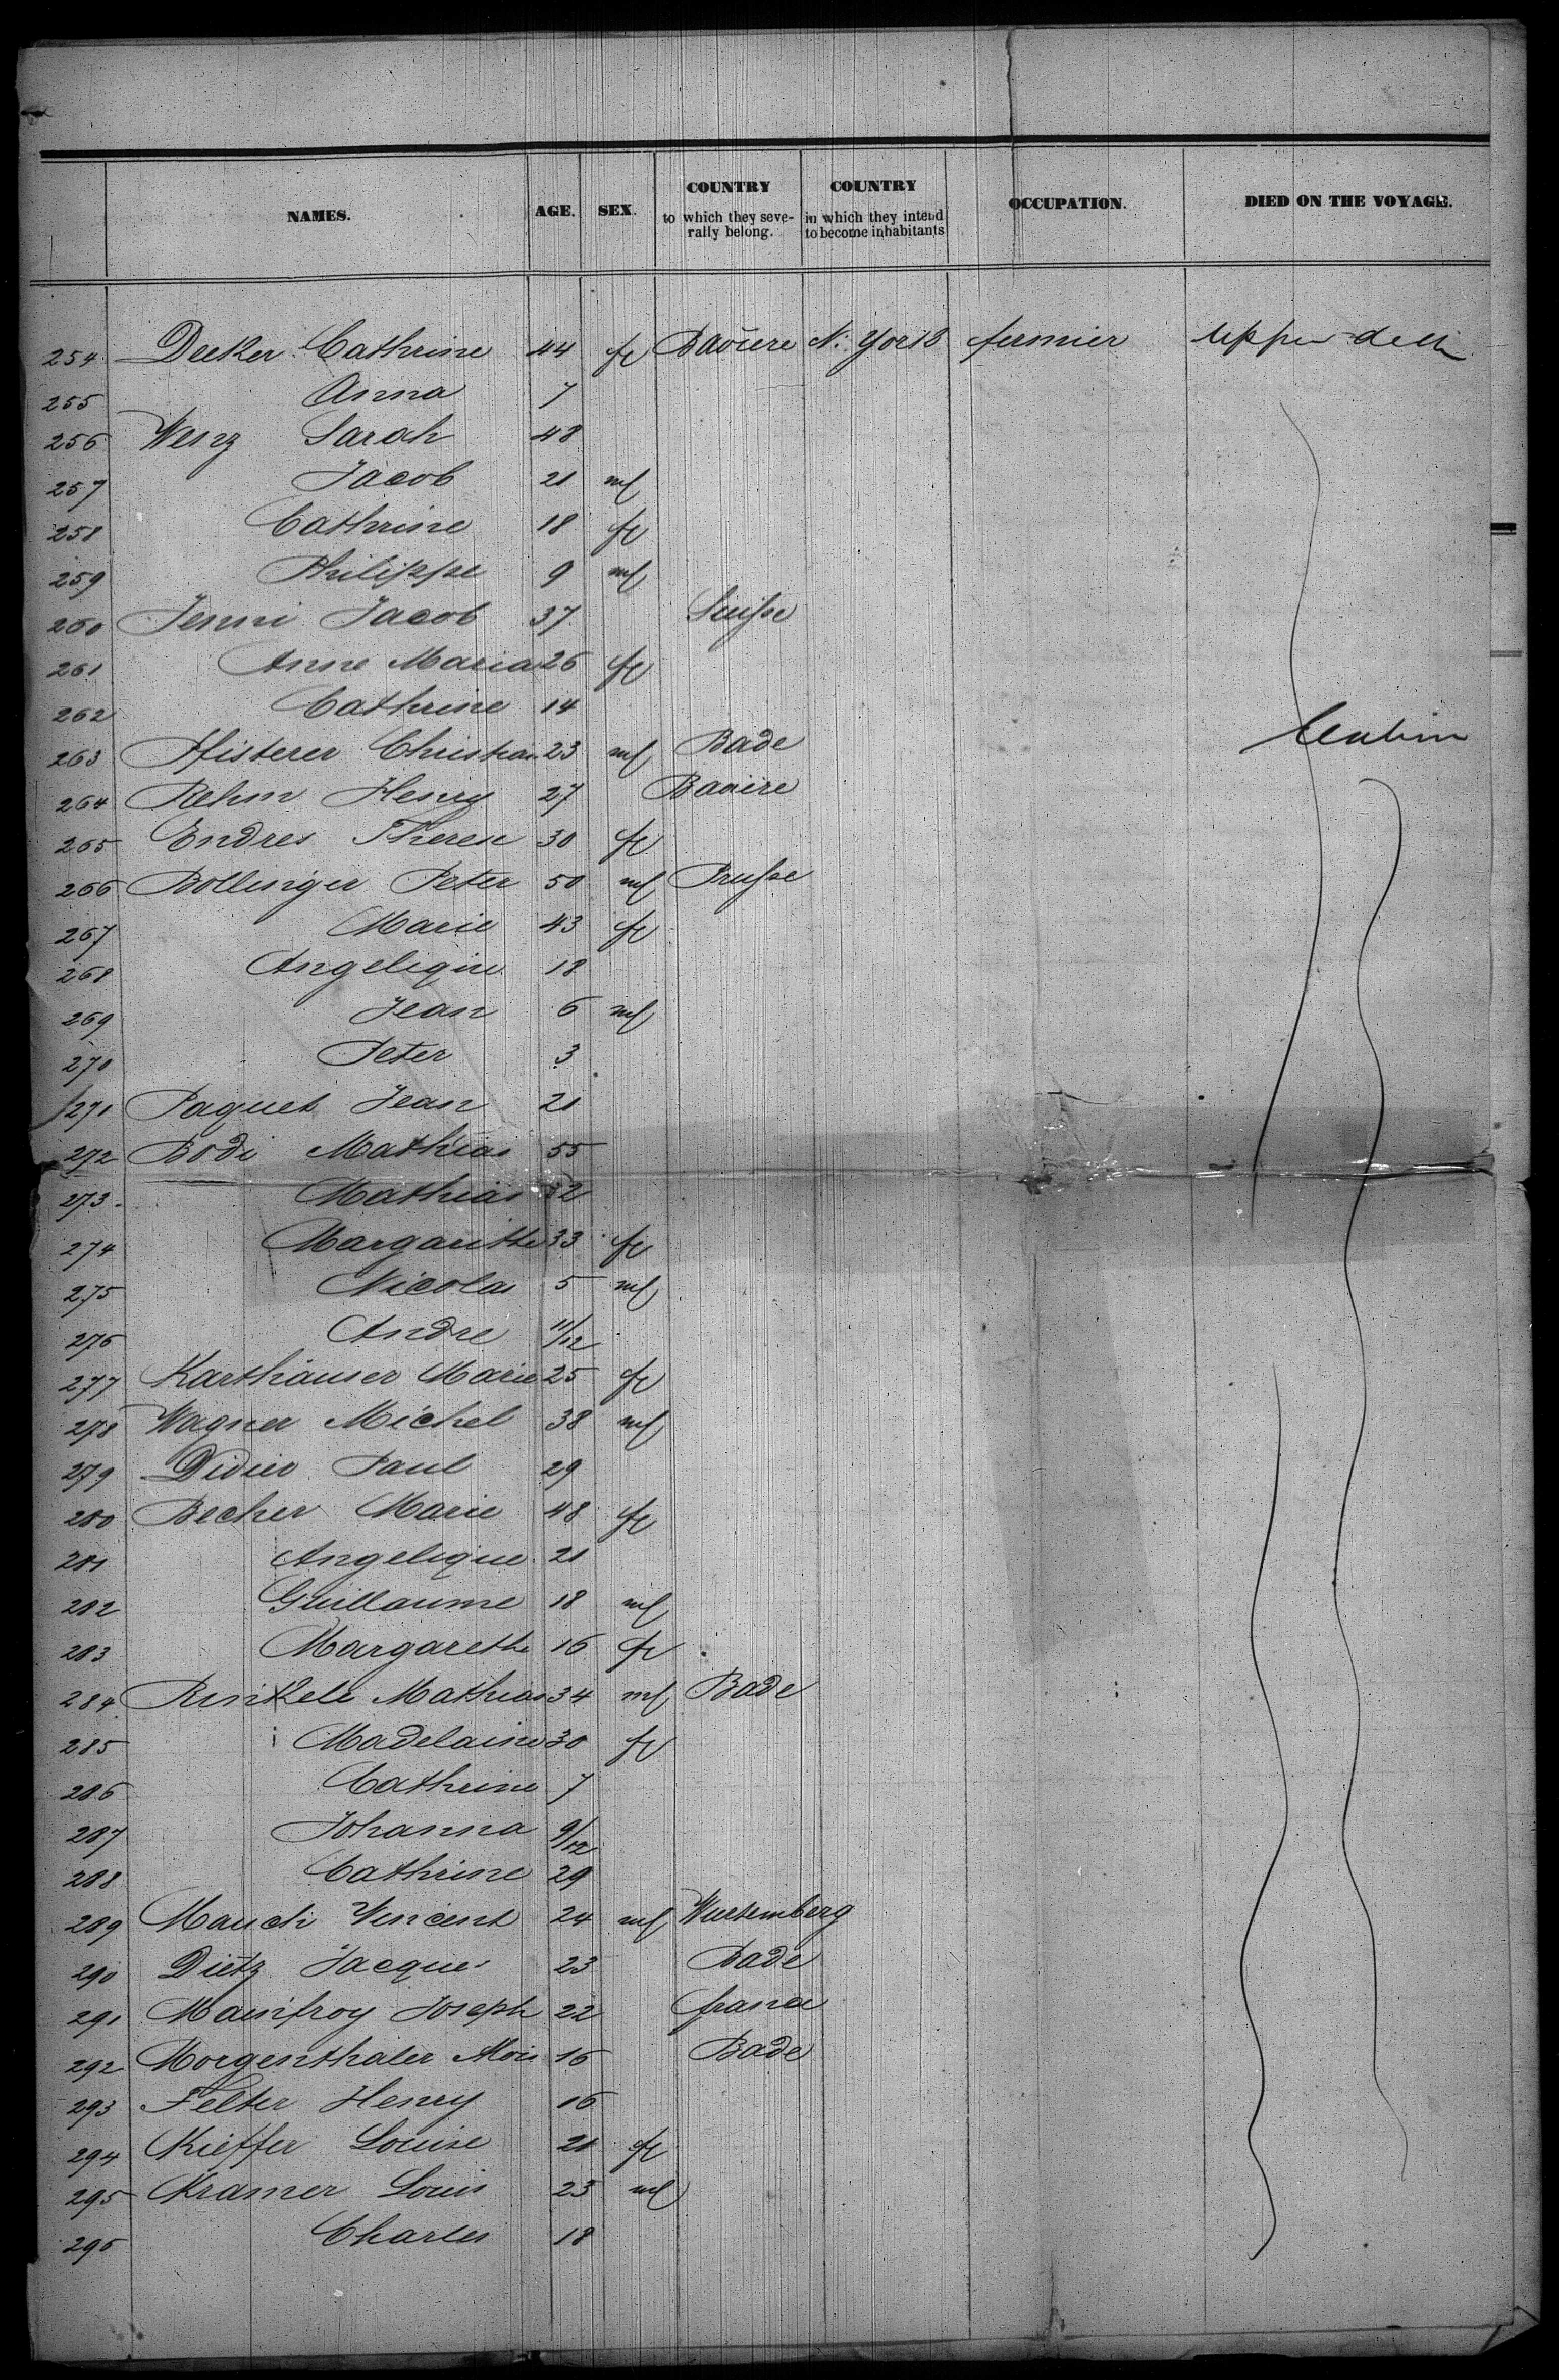 NAMES. AGE. SEX. COUNTRY to which they severally belong. COUNTRY in which they intend to become inhabitants OCCUPATION. DIED ON THE VOYAGE.
254 Decker Cathrine 44 fe Baviere N. York fermier upper deck
255 Anna 7
256 Wenz Sarah 48
257 Jacob 21 ml
258 Cathrine 18 fe
259 Philippe 9 ml
260 Jenni Jacob 37 Suisse
261 Anne Maria 26 fe
262 Cathrine 14
263 Pfisterer Christian 23 ml Bade
264 Rehm Henry 27 Baviere
265 Endres Therese 30 fe
266 Bollinger Peter 50 ml Prusse
267 Marie 43 fe
268 Angelique 18
269 Jean 6 ml
270 Peter 3
271 Paquet Jean 21
272 Bodi Mathias 55
273 Mathias 32
274 Margarithe 33 fe
275 Nicolas 5 ml
276 Andre 11/12
277 Karthäuser Marie 25 fe
278 Wagner Michel 38 ml
279 Didier Paul 29
280 Becher Marie 48 fe
281 Angelique 21
282 Guillaume 18 ml
283 Margarethe 16 fe
284 Rinkele Mathias 34 ml Bade
285 Madelaine 30 fe
286 Cathrine 7
287 Johanna 9/12
288 Cathrine 29
289 Mauch Vincent 24 ml Wurtemberg
290 Dietz Jacques 23 Bade
291 Mainfroy Joseph 22 france
292 Morgenthaler Alois 16 Bade
293 Felter Henry 16
294 Kieffer Louise 21 fe
295 Kramer Louis 25 ml
296 Charles 18